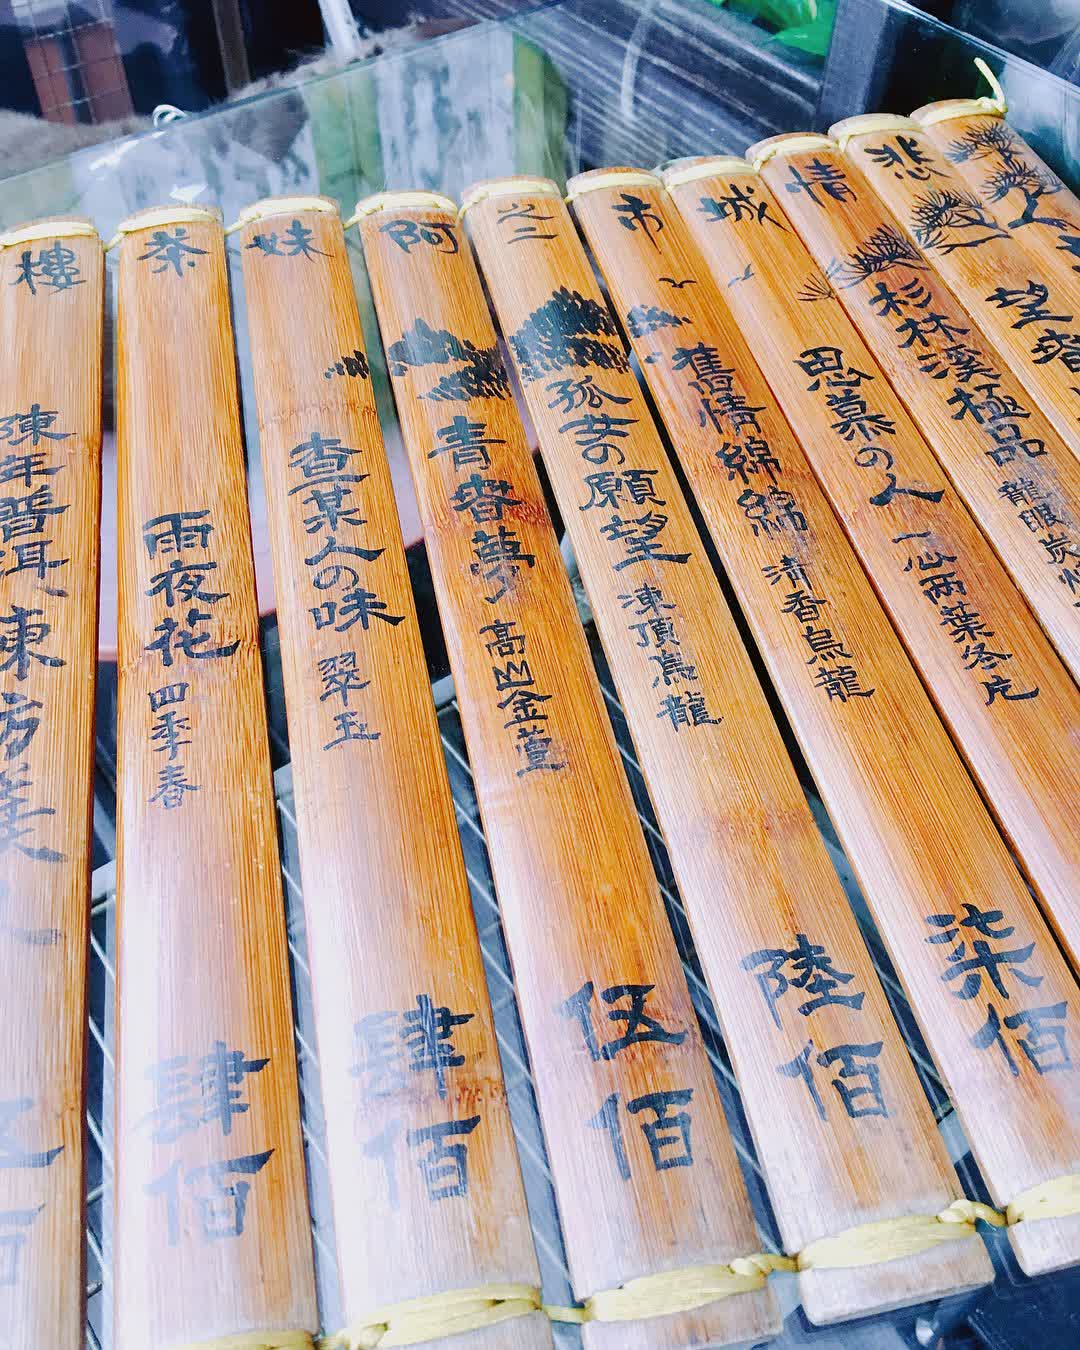 悲
望旾
情
杉林溪極品
龍眼炭焙
城
思慕の人
一心兩葉冬片
市
舊情綿綿
清香烏龍
柒佰
之二
孤女の願望
凍頂烏龍
陸佰
阿
青旾夢
高山金萱
伍佰
妹
查某人の味
翠玉
肆佰
茶
雨夜花
四季春
肆佰
樓
陳年普洱
東方美人